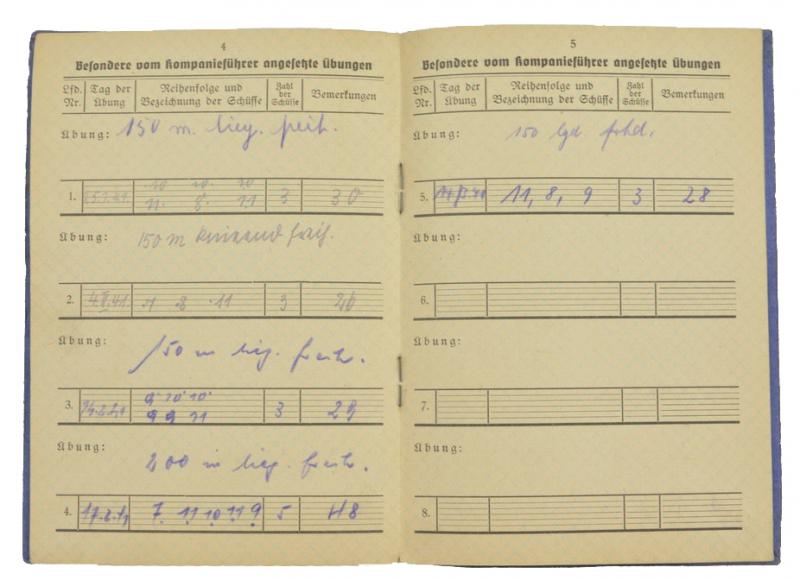 4
Besondere vom Kompanieführer angesetzte Übungen
Lfd. Nr. Tag der Übung Reihenfolge und Bezeichnung der Schüsse Zahl der Schüsse Bemerkungen
Übung: 150 m. lieg. freih.
10 10. 10
1. 11. 8. 11 3 30
Übung: 150 m kniend freih.
2. 4.II.41. 8 11 3 26
Übung: 150 m lieg. freih.
9 10 10
3. 9 9 11 3 29
Übung: 200 m lieg. freih.
4. 17.2.41 7. 11 10 11 9 5 48
5
Besondere vom Kompanieführer angesetzte Übungen
Lfd. Nr. Tag der Übung Reihenfolge und Bezeichnung der Schüsse Zahl der Schüsse Bemerkungen
Übung: 150 lgd. frhd.
5. 11, 8, 9 3 28
Übung:
6.
Übung:
7.
Übung:
8.